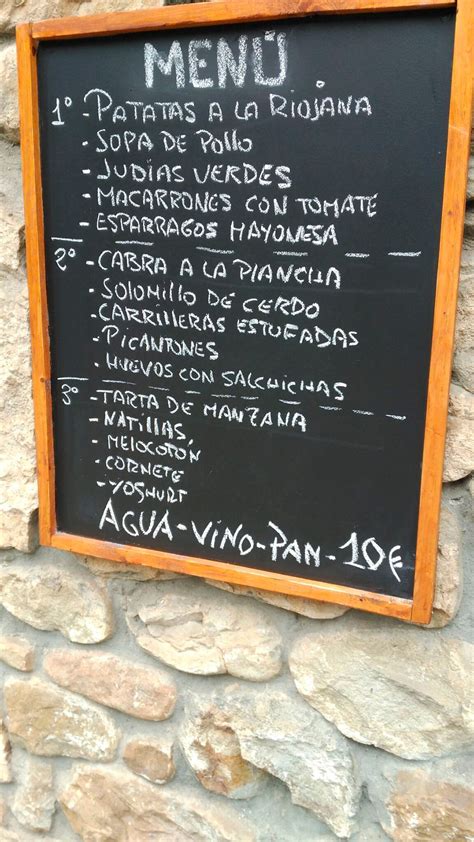 MENÚ
1º - PATATAS A LA RIOJANA
- SOPA DE POLLO
- JUDÍAS VERDES
- MACARRONES CON TOMATE
- ESPARRAGOS MAYONESA
2º - CABRA A LA PLANCHA
- SOLOMILLO DE CERDO
- CARRILLERAS ESTOFADAS
- PICANTONES
- HUEVOS CON SALCHICHAS
3º - TARTA DE MANZANA
- NATILLAS
- MELOCOTÓN
- CORNETE
- YOGHURT
AGUA - VINO - PAN - 10€